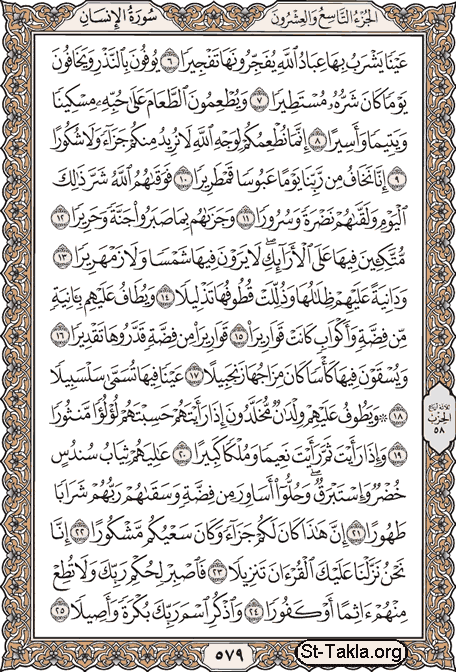 سُورَةُ الإِنسَان
الجُزْءُ التَّاسِعُ وَالعِشْرُونَ
عَيْنًا يَشْرَبُ بِهَا عِبَادُ ٱللَّهِ يُفَجِّرُونَهَا تَفْجِيرًا ٦ يُوفُونَ بِٱلنَّذْرِ وَيَخَافُونَ
يَوْمًا كَانَ شَرُّهُۥ مُسْتَطِيرًا ٧ وَيُطْعِمُونَ ٱلطَّعَامَ عَلَىٰ حُبِّهِۦ مِسْكِينًا
وَيَتِيمًا وَأَسِيرًا ٨ إِنَّمَا نُطْعِمُكُمْ لِوَجْهِ ٱللَّهِ لَا نُرِيدُ مِنكُمْ جَزَآءً وَلَا شُكُورًا
٩ إِنَّا نَخَافُ مِن رَّبِّنَا يَوْمًا عَبُوسًا قَمْطَرِيرًا ١٠ فَوَقَىٰهُمُ ٱللَّهُ شَرَّ ذَٰلِكَ
ٱلْيَوْمِ وَلَقَّىٰهُمْ نَضْرَةً وَسُرُورًا ١١ وَجَزَىٰهُم بِمَا صَبَرُوا۟ جَنَّةً وَحَرِيرًا ١٢
مُّتَّكِـِٔينَ فِيهَا عَلَى ٱلْأَرَآئِكِ ۖ لَا يَرَوْنَ فِيهَا شَمْسًا وَلَا زَمْهَرِيرًا ١٣
وَدَانِيَةً عَلَيْهِمْ ظِلَٰلُهَا وَذُلِّلَتْ قُطُوفُهَا تَذْلِيلًا ١٤ وَيُطَافُ عَلَيْهِم بِـَٔانِيَةٍ
مِّن فِضَّةٍ وَأَكْوَابٍ كَانَتْ قَوَارِيرَا۠ ١٥ قَوَارِيرَا۟ مِن فِضَّةٍ قَدَّرُوهَا تَقْدِيرًا ١٦
وَيُسْقَوْنَ فِيهَا كَأْسًا كَانَ مِزَاجُهَا زَنجَبِيلًا ١٧ عَيْنًا فِيهَا تُسَمَّىٰ سَلْسَبِيلًا
١٨ ۞ وَيَطُوفُ عَلَيْهِمْ وِلْدَٰنٌ مُّخَلَّدُونَ إِذَا رَأَيْتَهُمْ حَسِبْتَهُمْ لُؤْلُؤًا مَّنثُورًا
١٩ وَإِذَا رَأَيْتَ ثَمَّ رَأَيْتَ نَعِيمًا وَمُلْكًا كَبِيرًا ٢٠ عَٰلِيَهُمْ ثِيَابُ سُندُسٍ
خُضْرٌ وَإِسْتَبْرَقٌ ۖ وَحُلُّوٓا۟ أَسَاوِرَ مِن فِضَّةٍ وَسَقَىٰهُمْ رَبُّهُمْ شَرَابًا
طَهُورًا ٢١ إِنَّ هَٰذَا كَانَ لَكُمْ جَزَآءً وَكَانَ سَعْيُكُم مَّشْكُورًا ٢٢ إِنَّا
نَحْنُ نَزَّلْنَا عَلَيْكَ ٱلْقُرْءَانَ تَنزِيلًا ٢٣ فَٱصْبِرْ لِحُكْمِ رَبِّكَ وَلَا تُطِعْ
مِنْهُمْ ءَاثِمًا أَوْ كَفُورًا ٢٤ وَٱذْكُرِ ٱسْمَ رَبِّكَ بُكْرَةً وَأَصِيلًا ٢٥
ثلاثة أرباع
الحزب
٥٨
٥٧٩
St-Takla.org